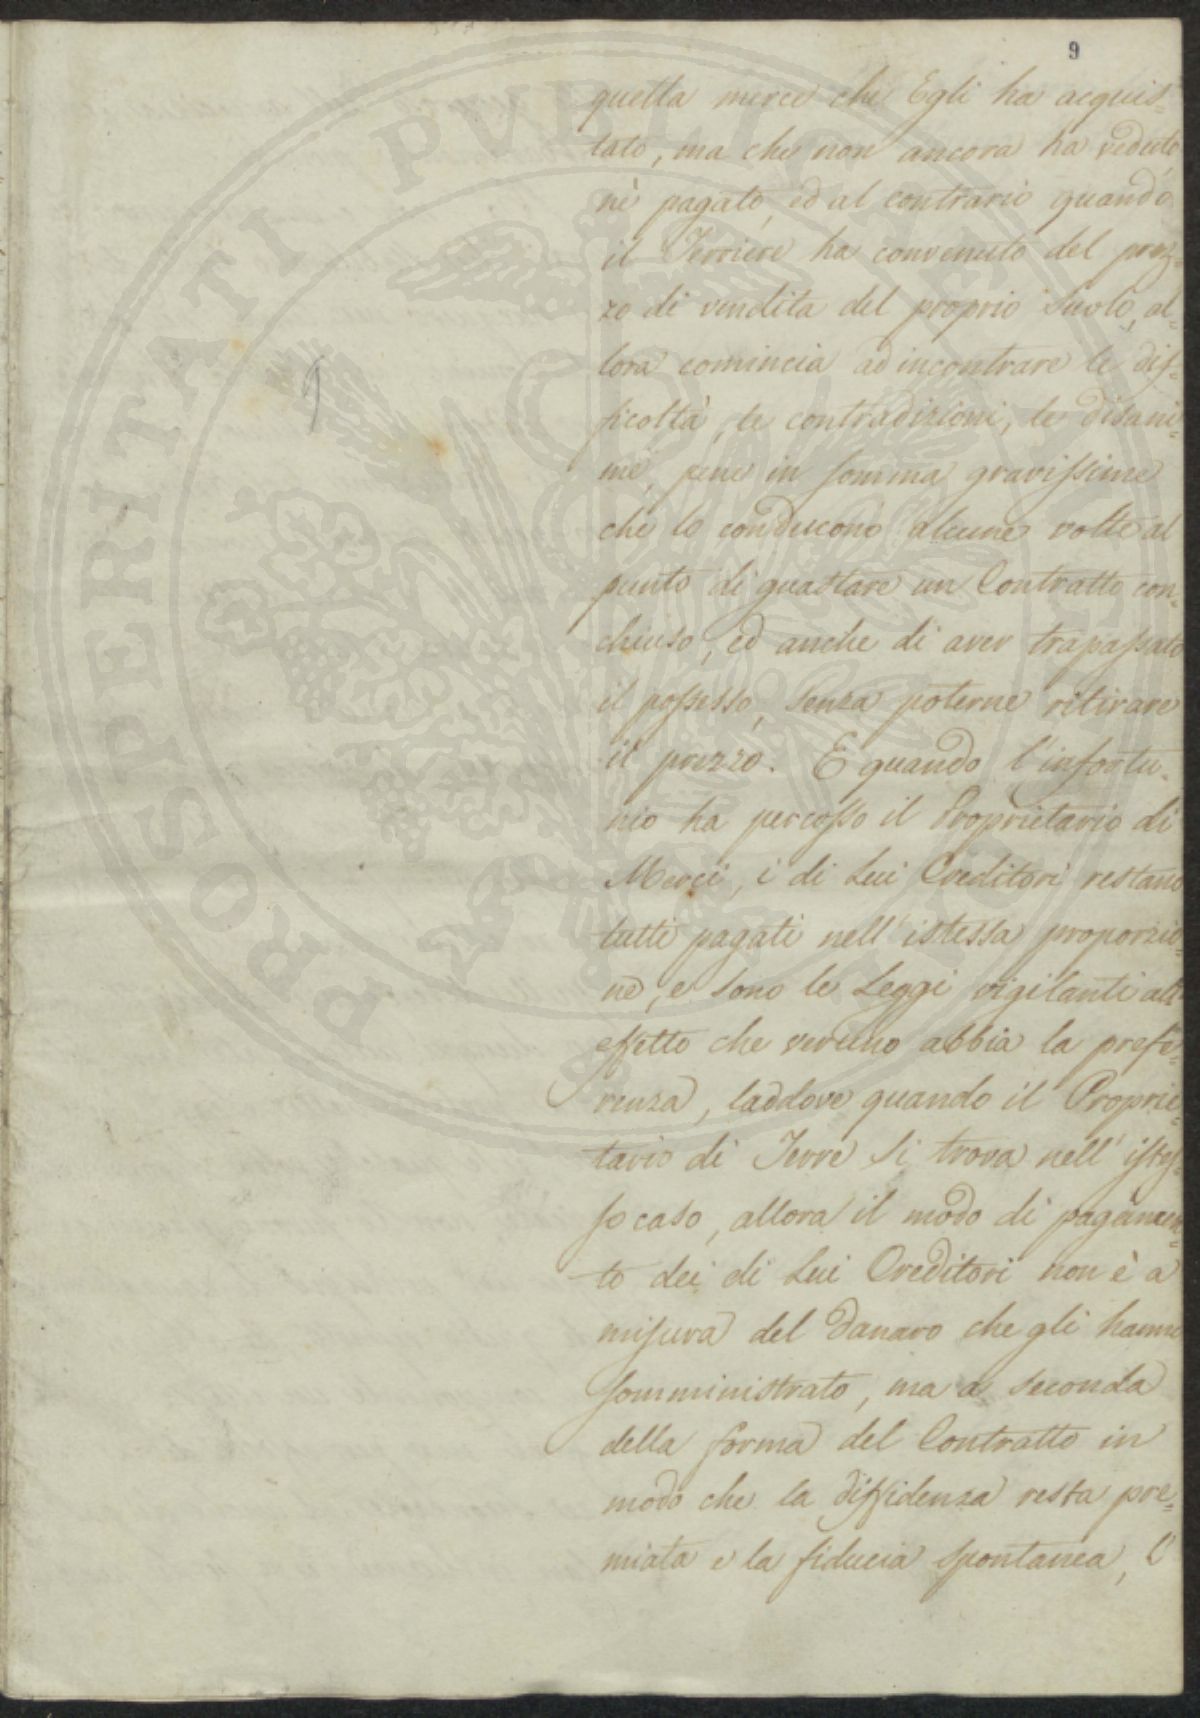 9
quella merce che Egli ha acquis-
tato, ma che non ancora ha veduto
nè pagato, ed al contrario quando
il Terriere ha convenuto del prez-
zo di vendita del proprio suolo, al-
lora comincia ad incontrare le dif-
ficoltà, le contradizioni, le disani-
me, pene in somma gravissime
che lo conducono alcune volte al
punto di guastare un Contratto con-
chiuso, ed anche di aver trapassato
il possesso, senza poterne ritirare
il prezzo. E quando l'infortu-
nio ha percosso il Proprietario di
Merci, i di Lui Creditori restano
tutti pagati nell'istessa proporzio-
ne, e sono le Leggi vigilanti all'
effetto che veruno abbia la prefe-
renza, laddove quando il Proprie-
tario di Terre si trova nell'istes-
so caso, allora il modo di pagamen-
to dei di Lui Creditori non è a
misura del danaro che gli hanno
somministrato, ma a seconda
della forma del Contratto in
modo che la diffidenza resta pre-
miata e la fiducia spontanea, l'
9
PROSPERITATI PUBLICAE